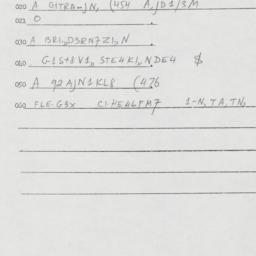 020 A GITRA-JN, (454 A,JD1/3M
021 O
030 A BRI,,D3RN7ZI,,N
040 G1S+8V1,, STE4KI,NDE4 $
050 A 92AJN1KL8 (476
060 FLE-G3X CI-HE4LFM7 1-N,TA,TN,